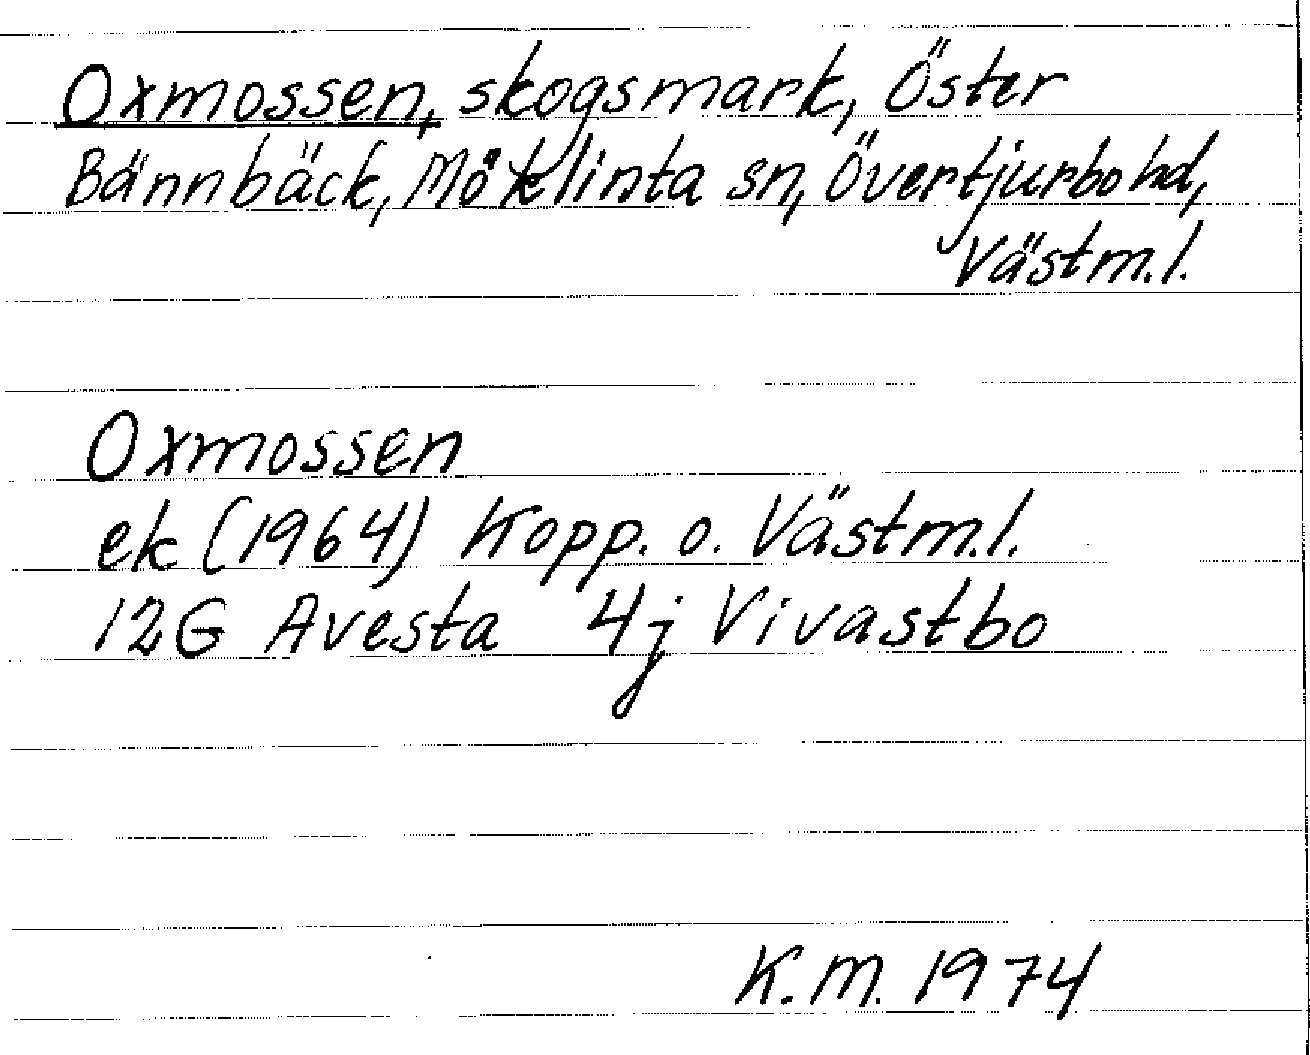 Oxmossen, skogsmark, Öster
Bännbäck, Möklinta sn, Övertjurbo hd,
Västm.l.
Oxmossen
ek (1964) Kopp. o. Västm.l.
12G Avesta 4j Vivastbo
K.M. 1974